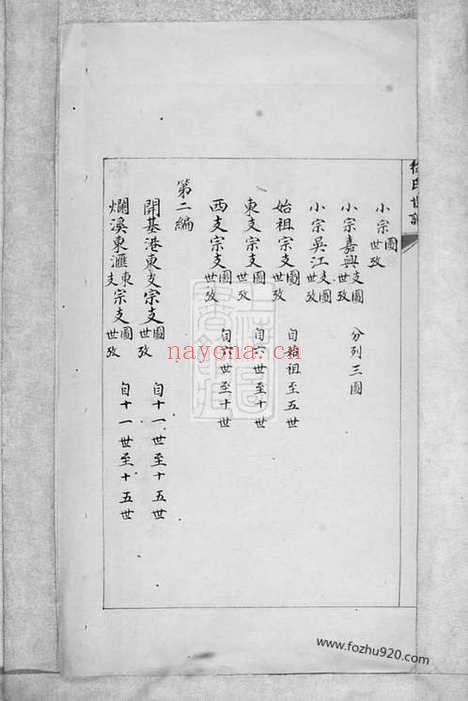 徐氏世譜
小宗圖世攷
小宗嘉興支圖世攷 分列三圖
小宗吳江支圖世攷
始祖宗支圖世攷 自始祖至五世
東支宗支圖世攷 自六世至十世
西支宗支圖世攷 自六世至十世
第二編
開基港東支宗支圖世攷 自十一世至十五世
爛溪東滙東支宗支圖世攷 自十一世至十五世
nayona.cn
www.fozhu920.com